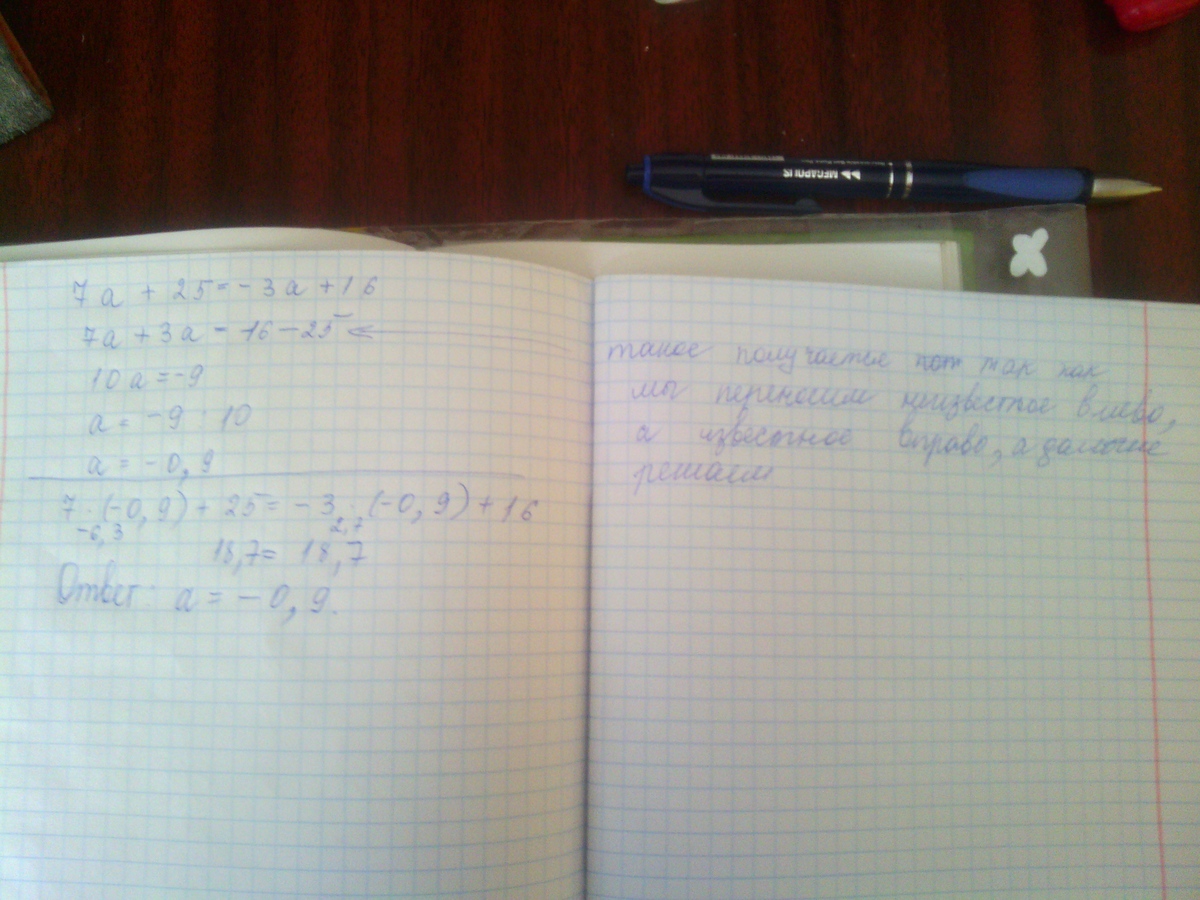 7a + 25 = - 3a + 16
7a + 3a = 16 - 25
10a = -9
a = -9 : 10
a = -0,9
7 · (-0,9) + 25 = -3 · (-0,9) + 16
-6,3 2,7
18,7 = 18,7
Ответ: a = -0,9.
такое получается так как
мы переносим неизвестое влево,
а известное вправо, а дальше
решаем
MEGAPOLIS